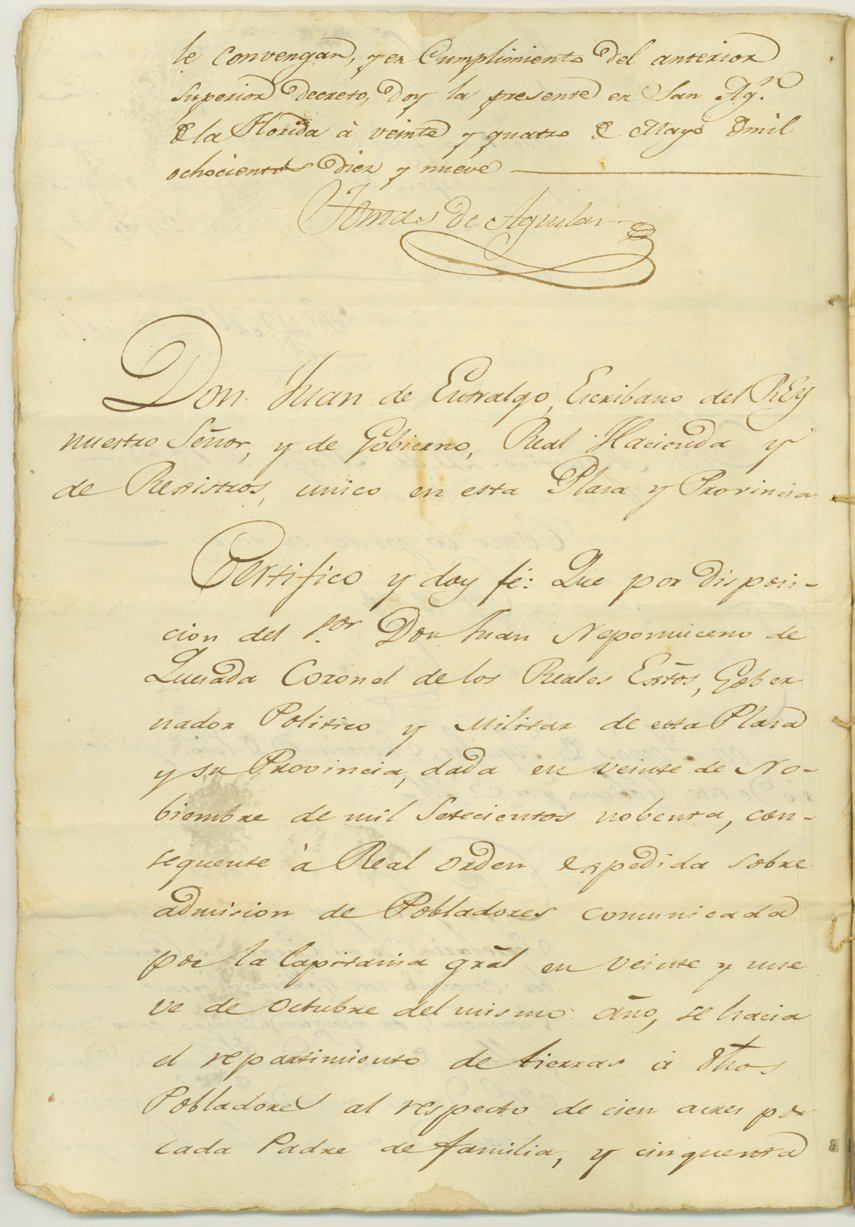 le convengan, y en Cumplimiento del anterior
Superior Decreto, doy la presente en San Agn.
de la Florida à veinte y quatro de Mayo de mil
ochocientos diez y nueve
Tomas de Aguilar
Don Juan de Entralgo, Escribano del REY
nuestro Señor, y de Gobierno, Real Hacienda y
de Registros, unico en esta Plaza y Provincia
Certifico y doy fé: Que por disposi-
cion del Sor. Don Juan Nepomuceno de
Quesada Coronel de los Reales Extos, Gober
nador Politico y Militar de esta Plaza
y su Provincia, dada en veinte de No-
biembre de mil setecientos nobenta, con-
sequente à Real orden expedida sobre
admision de Pobladores comunicada
por la Capitania gral en veinte y nue
ve de Octubre del mismo año, se hacia
el repartimiento de tierras à dhos
Pobladores al respecto de cien acres por
cada Padre de familia, y cinquenta